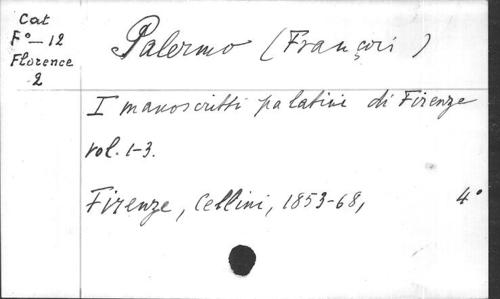 Cat
F° — 12
Florence
2
Palermo (François)
I manoscritti palatini di Firenze
vol. 1-3.
Firenze, Cellini, 1853-68, 4°